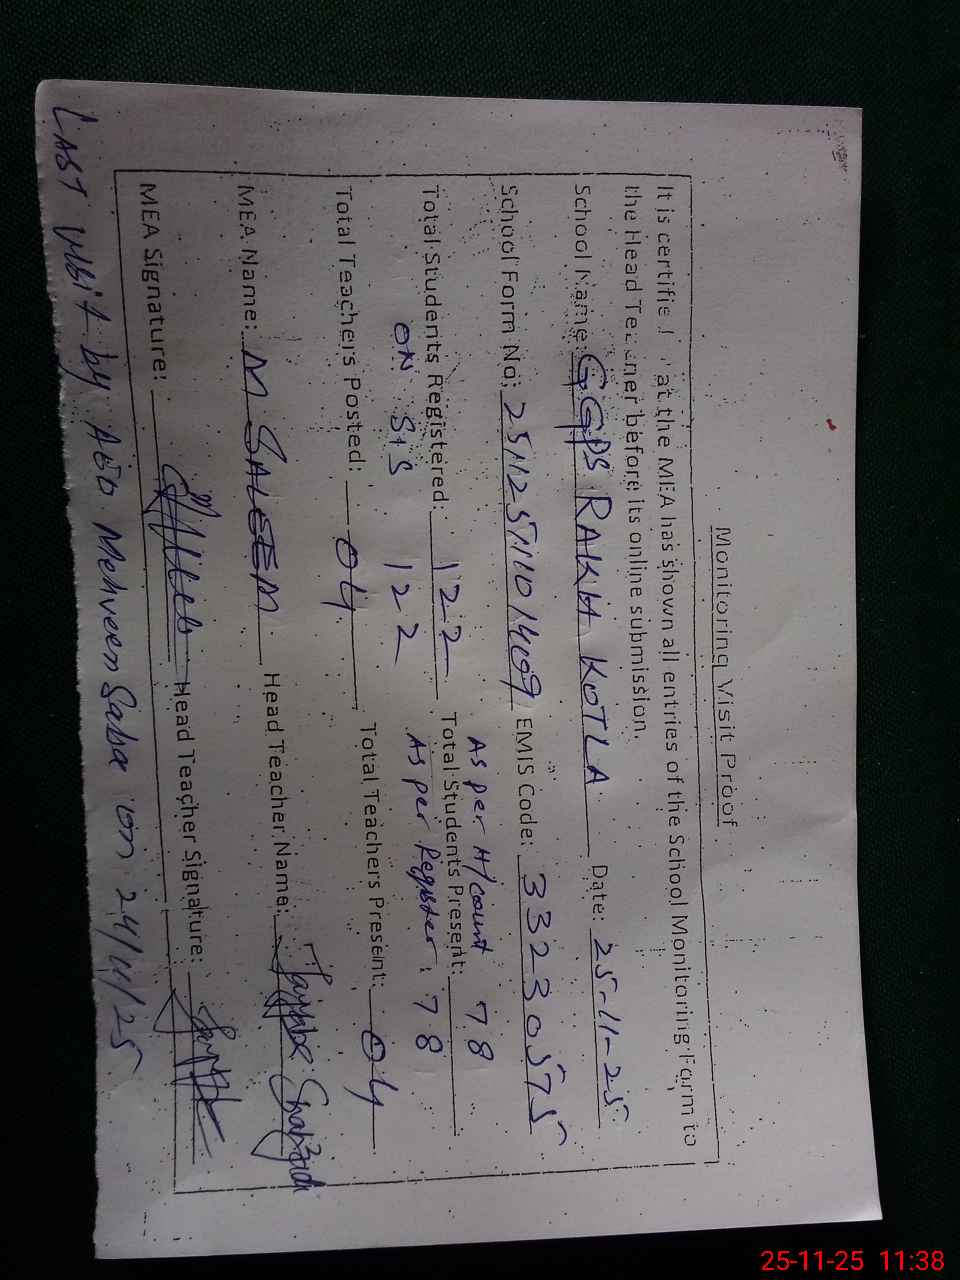 Monitoring Visit Proof
It is certified that the MEA has shown all entries of the School Monitoring Form to
the Head Teacher before its online submission.
School Name: GGPS RAKH KOTLA Date: 25-11-25
School Form No: 25112511101409 EMIS Code: 33230575
As per H/count 78
Total Students Registered: 122 Total Students Present:
ON SIS 122 As per Register: 78
Total Teachers Posted: 04 Total Teachers Present: 04
MEA Name: M SALEEM Head Teacher Name: Shahzadi
MEA Signature: Head Teacher Signature:
LAST visit by AEO Mehveen Saba on 24/11/25
25-11-25 11:38